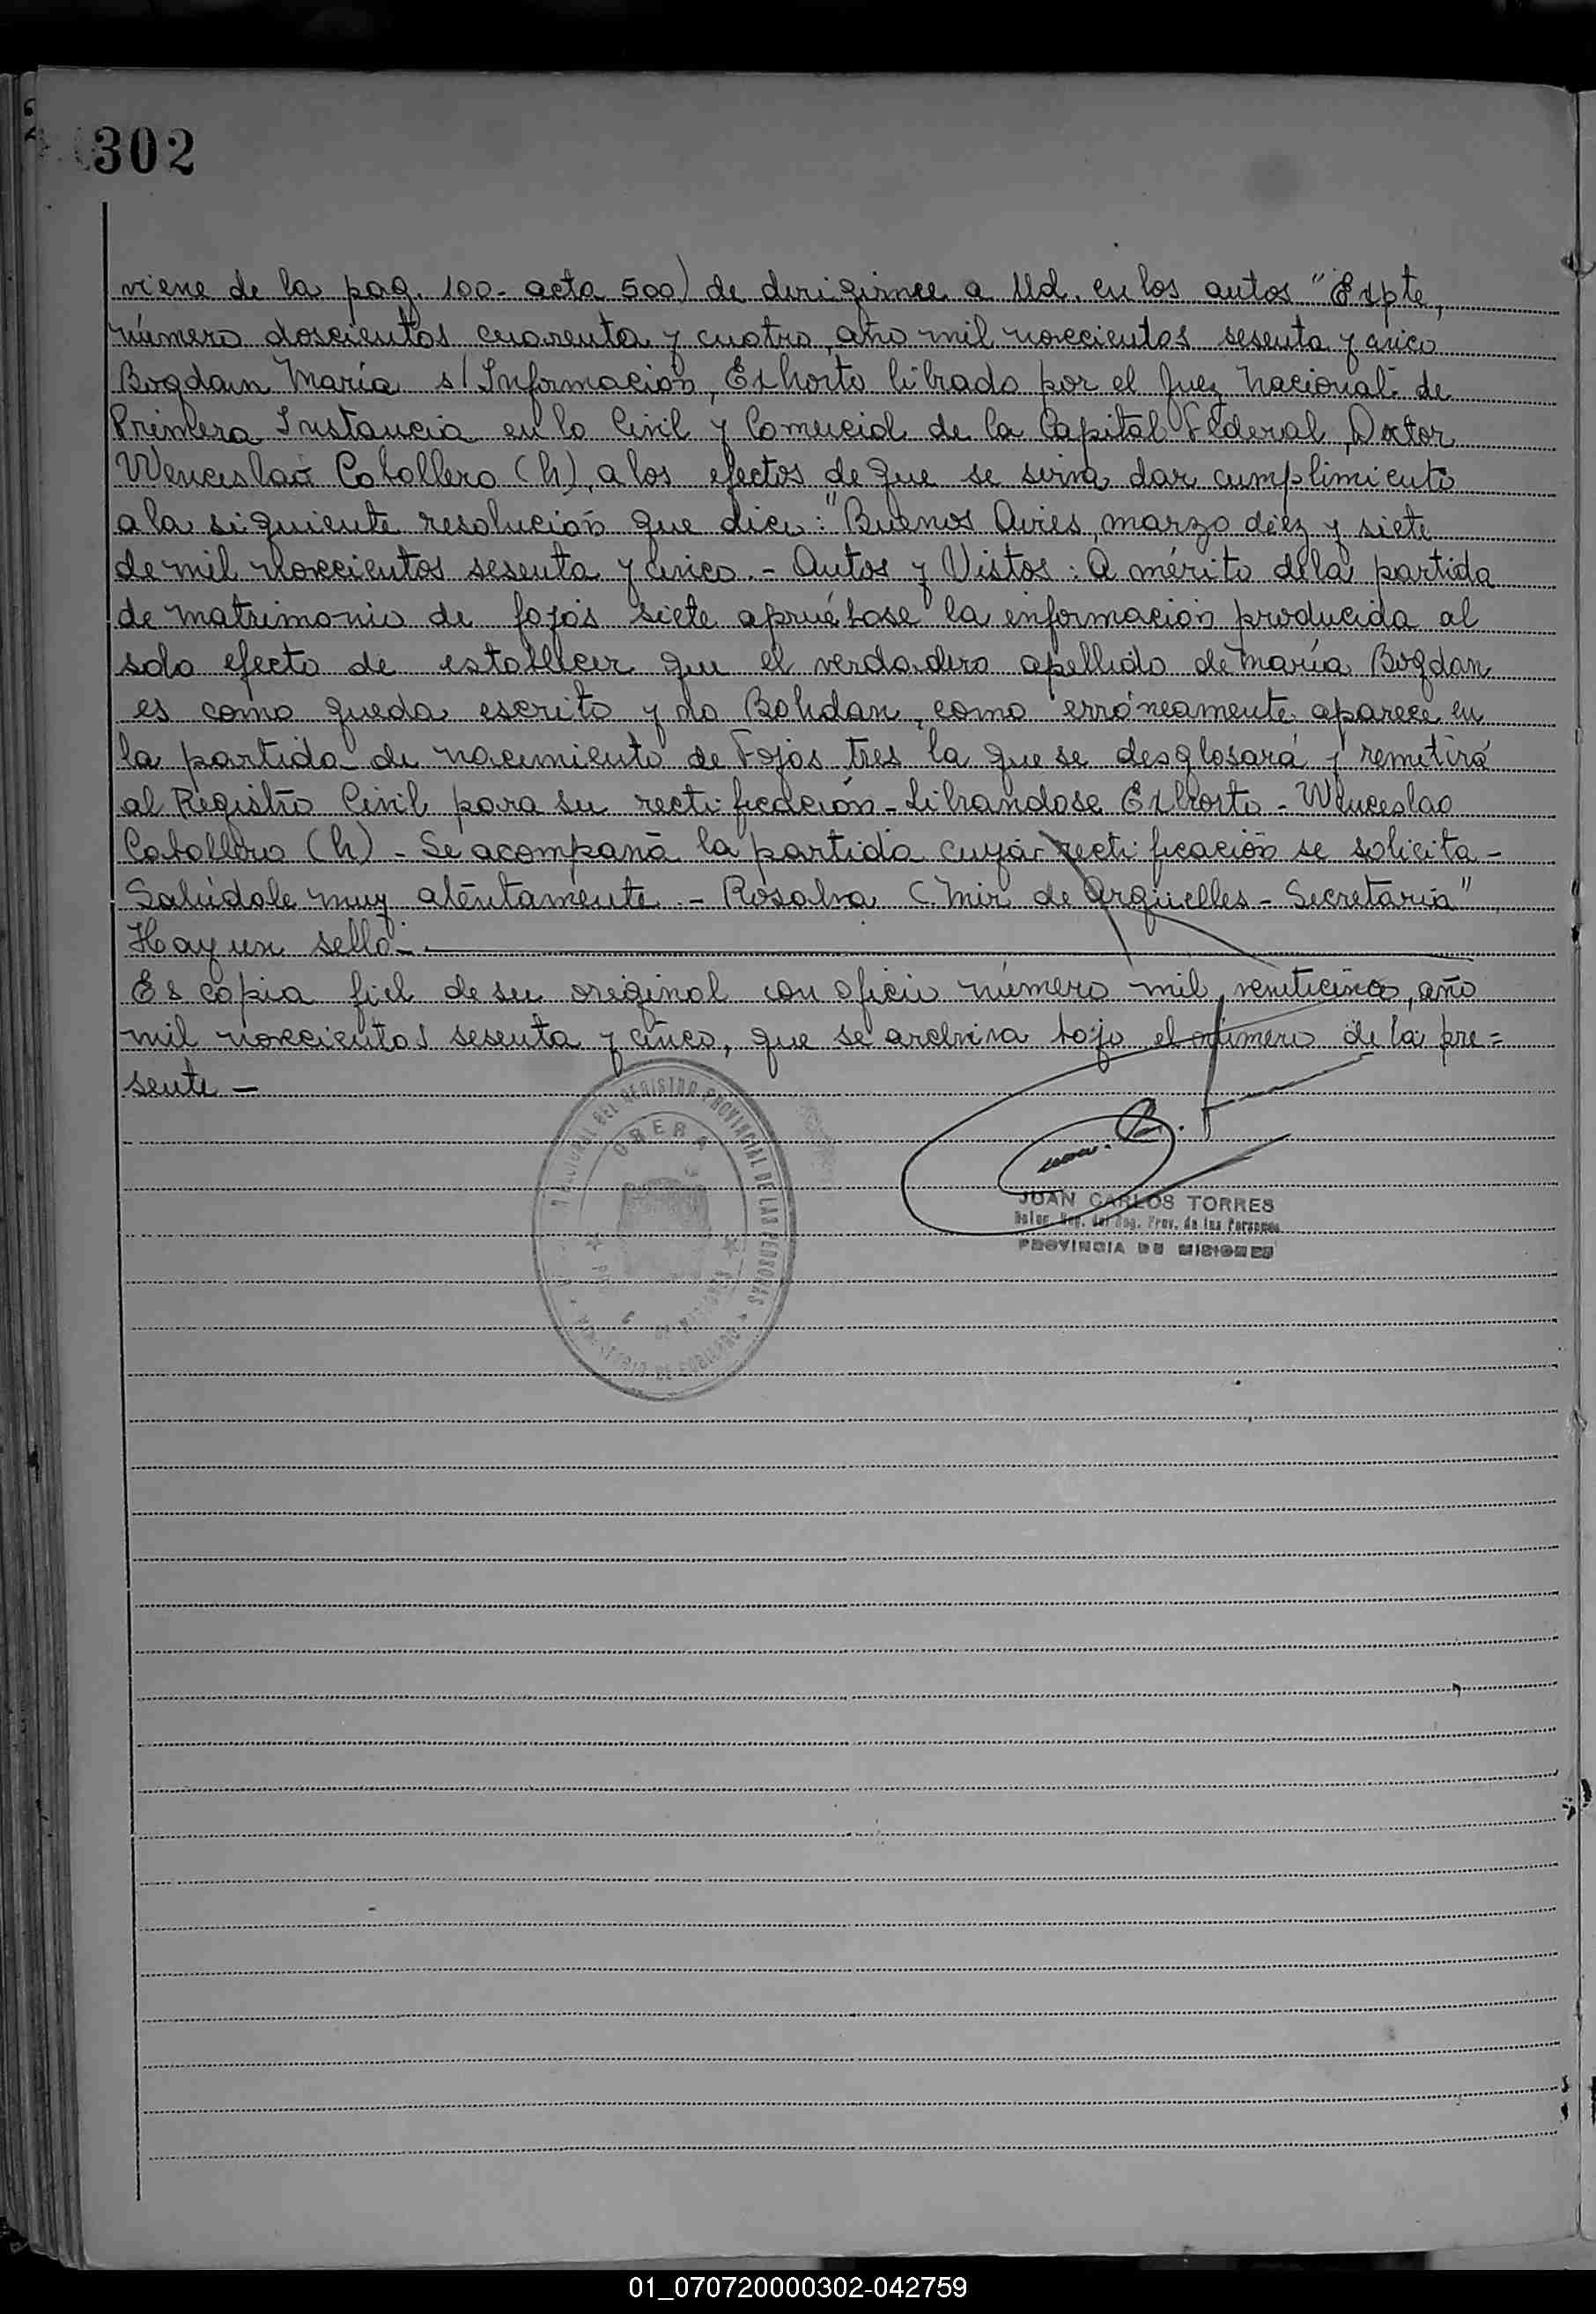 302
viene de la pag. 100- acta 500) de dirigirmee a Ud. en los autos "Expte,
número doscientos cuarenta y cuatro, año mil novecientos sesenta y cinco
Bogdan María s/ Información, Exhorto librado por el Juez Nacional de
Primera Instancia en lo Civil y Comercial de la Capital Federal, Doctor
Wenceslao Caballero (h), a los efectos de que se sirva dar cumplimiento
a la siguiente resolución que dice: "Buenos Aires, marzo diez y siete
de mil novecientos sesenta y cinco.- Autos y Vistos: A mérito de la partida
de matrimonio de fojas siete apruébase la información producida al
solo efecto de establecer que el verdadero apellido de María Bogdan
es como queda escrito y no Bohdan, como erróneamente aparece en
la partida de nacimiento de Fojas tres la que se desglosará y remetirá
al Registro Civil para su rectificación - Librandose Exhorto - Wenceslao
Caballero (h) - Se acompaña la partida cuya rectificación se solicita -
Salúdale muy aténtamente.- Rosalva C. Mir de Argüelles - Secretaria"
Hay un sello-.
Es copia fiel de su original con oficio número mil, veniticinco, año
mil novecientos sesenta y cinco, que se archiva bajo el número de la pre=
sente -
DEL REGISTRO PROVINCIAL DE LAS PERSONAS
OBERA
JUAN CARLOS TORRES
Reg. del Reg. Prov. de las Personas
PROVINCIA DE MISIONES
01_070720000302-042759